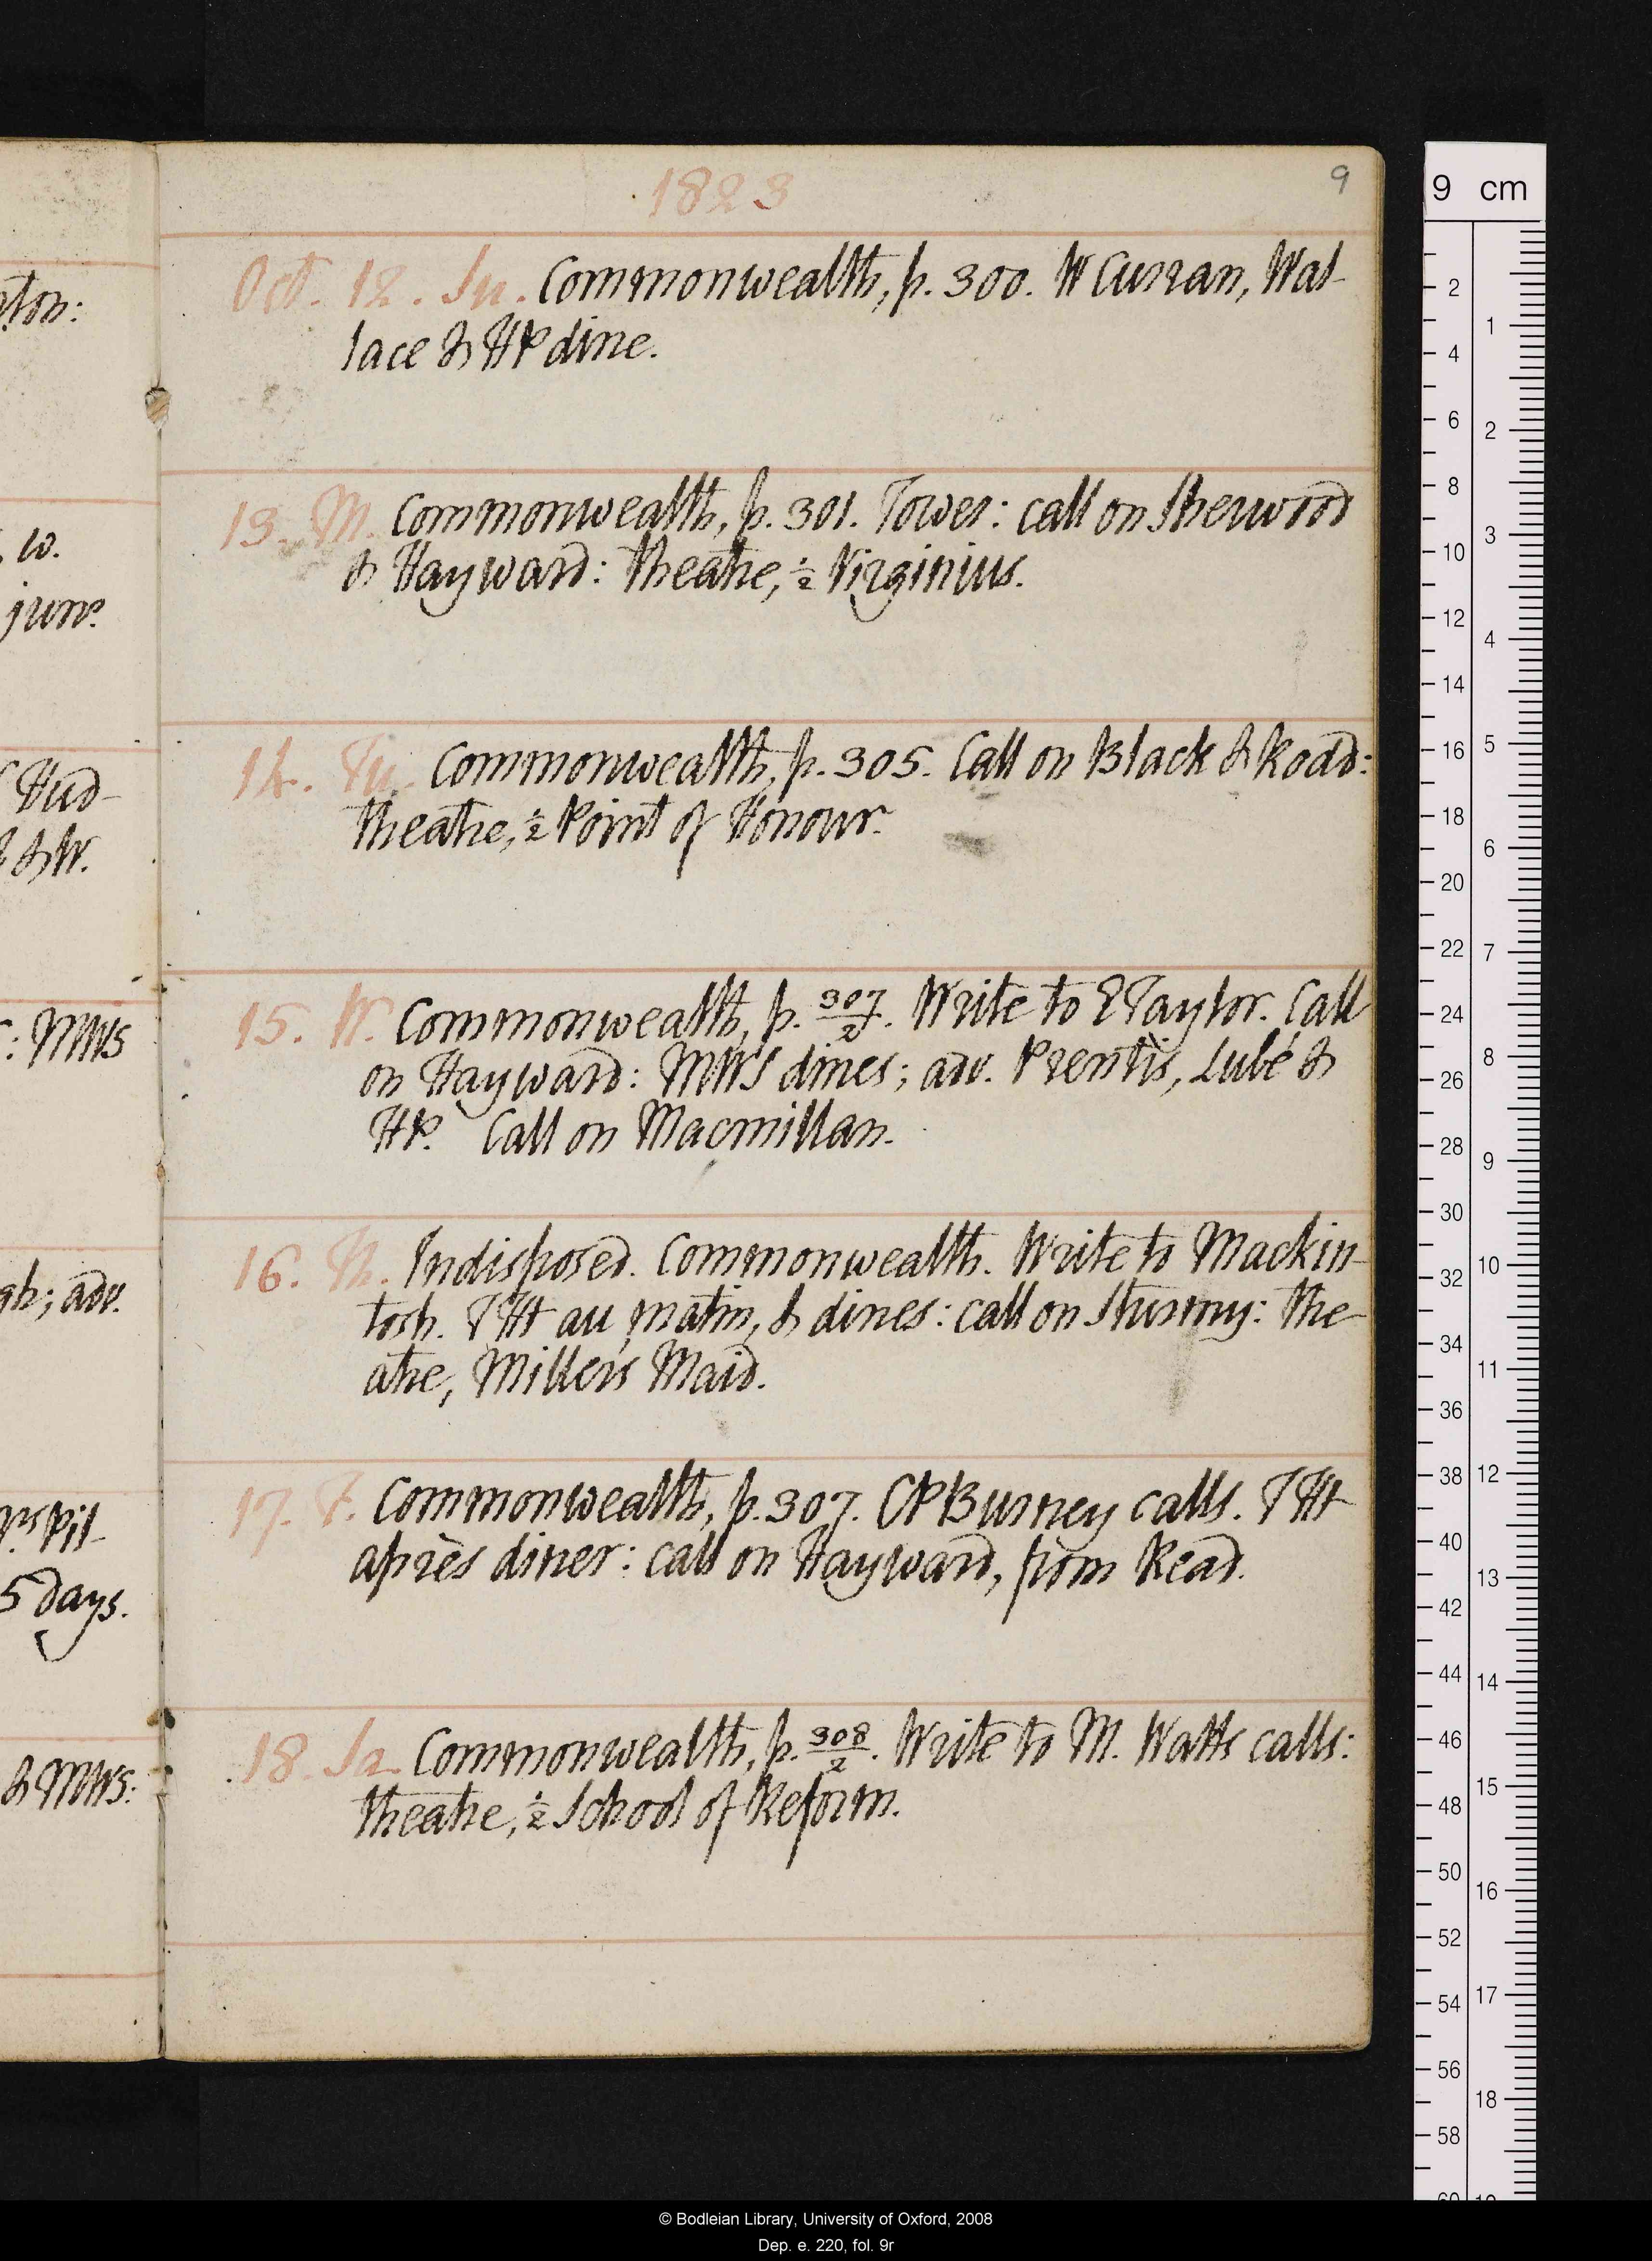 1823
9
Oct. 12. Su. Commonwealth, p. 300. W Curran, Wal-
lace & HP dine.
13. M. Commonwealth, p. 301. Tower: call on Sherwood
& Hayward: theatre, ½ Virginius.
14. Tu. Commonwealth, p. 305. Call on Black & Rodd:
theatre, ½ Point of Honour.
15. W. Commonwealth, p. 307/2. Write to E Taylor. Call
on Hayward: MWS dines; adv. Prentis, Lubé &
HP. Call on Macmillan.
16. Th. Indisposed. Commonwealth. Write to Mackin-
tosh. THt au matin, & dines: call on Sturmy: the-
atre, Miller's Maid.
17. F. Commonwealth, p. 307. CPBurney calls. THt
après diner: call on Hayward, from Read.
18. Sa. Commonwealth, p. 308/2. Write to M. Watts calls:
theatre, ½ School of Reform.
ton:
w.
junr
Hud-
& W.
: MWS
gh; adv.
Pil-
5 days.
& MWS:
9 cm
2
4
6
8
10
12
14
16
18
20
22
24
26
28
30
32
34
36
38
40
42
44
46
48
50
52
54
56
58
1
2
3
4
5
6
7
8
9
10
11
12
13
14
15
16
17
18
© Bodleian Library, University of Oxford, 2008
Dep. e. 220, fol. 9r